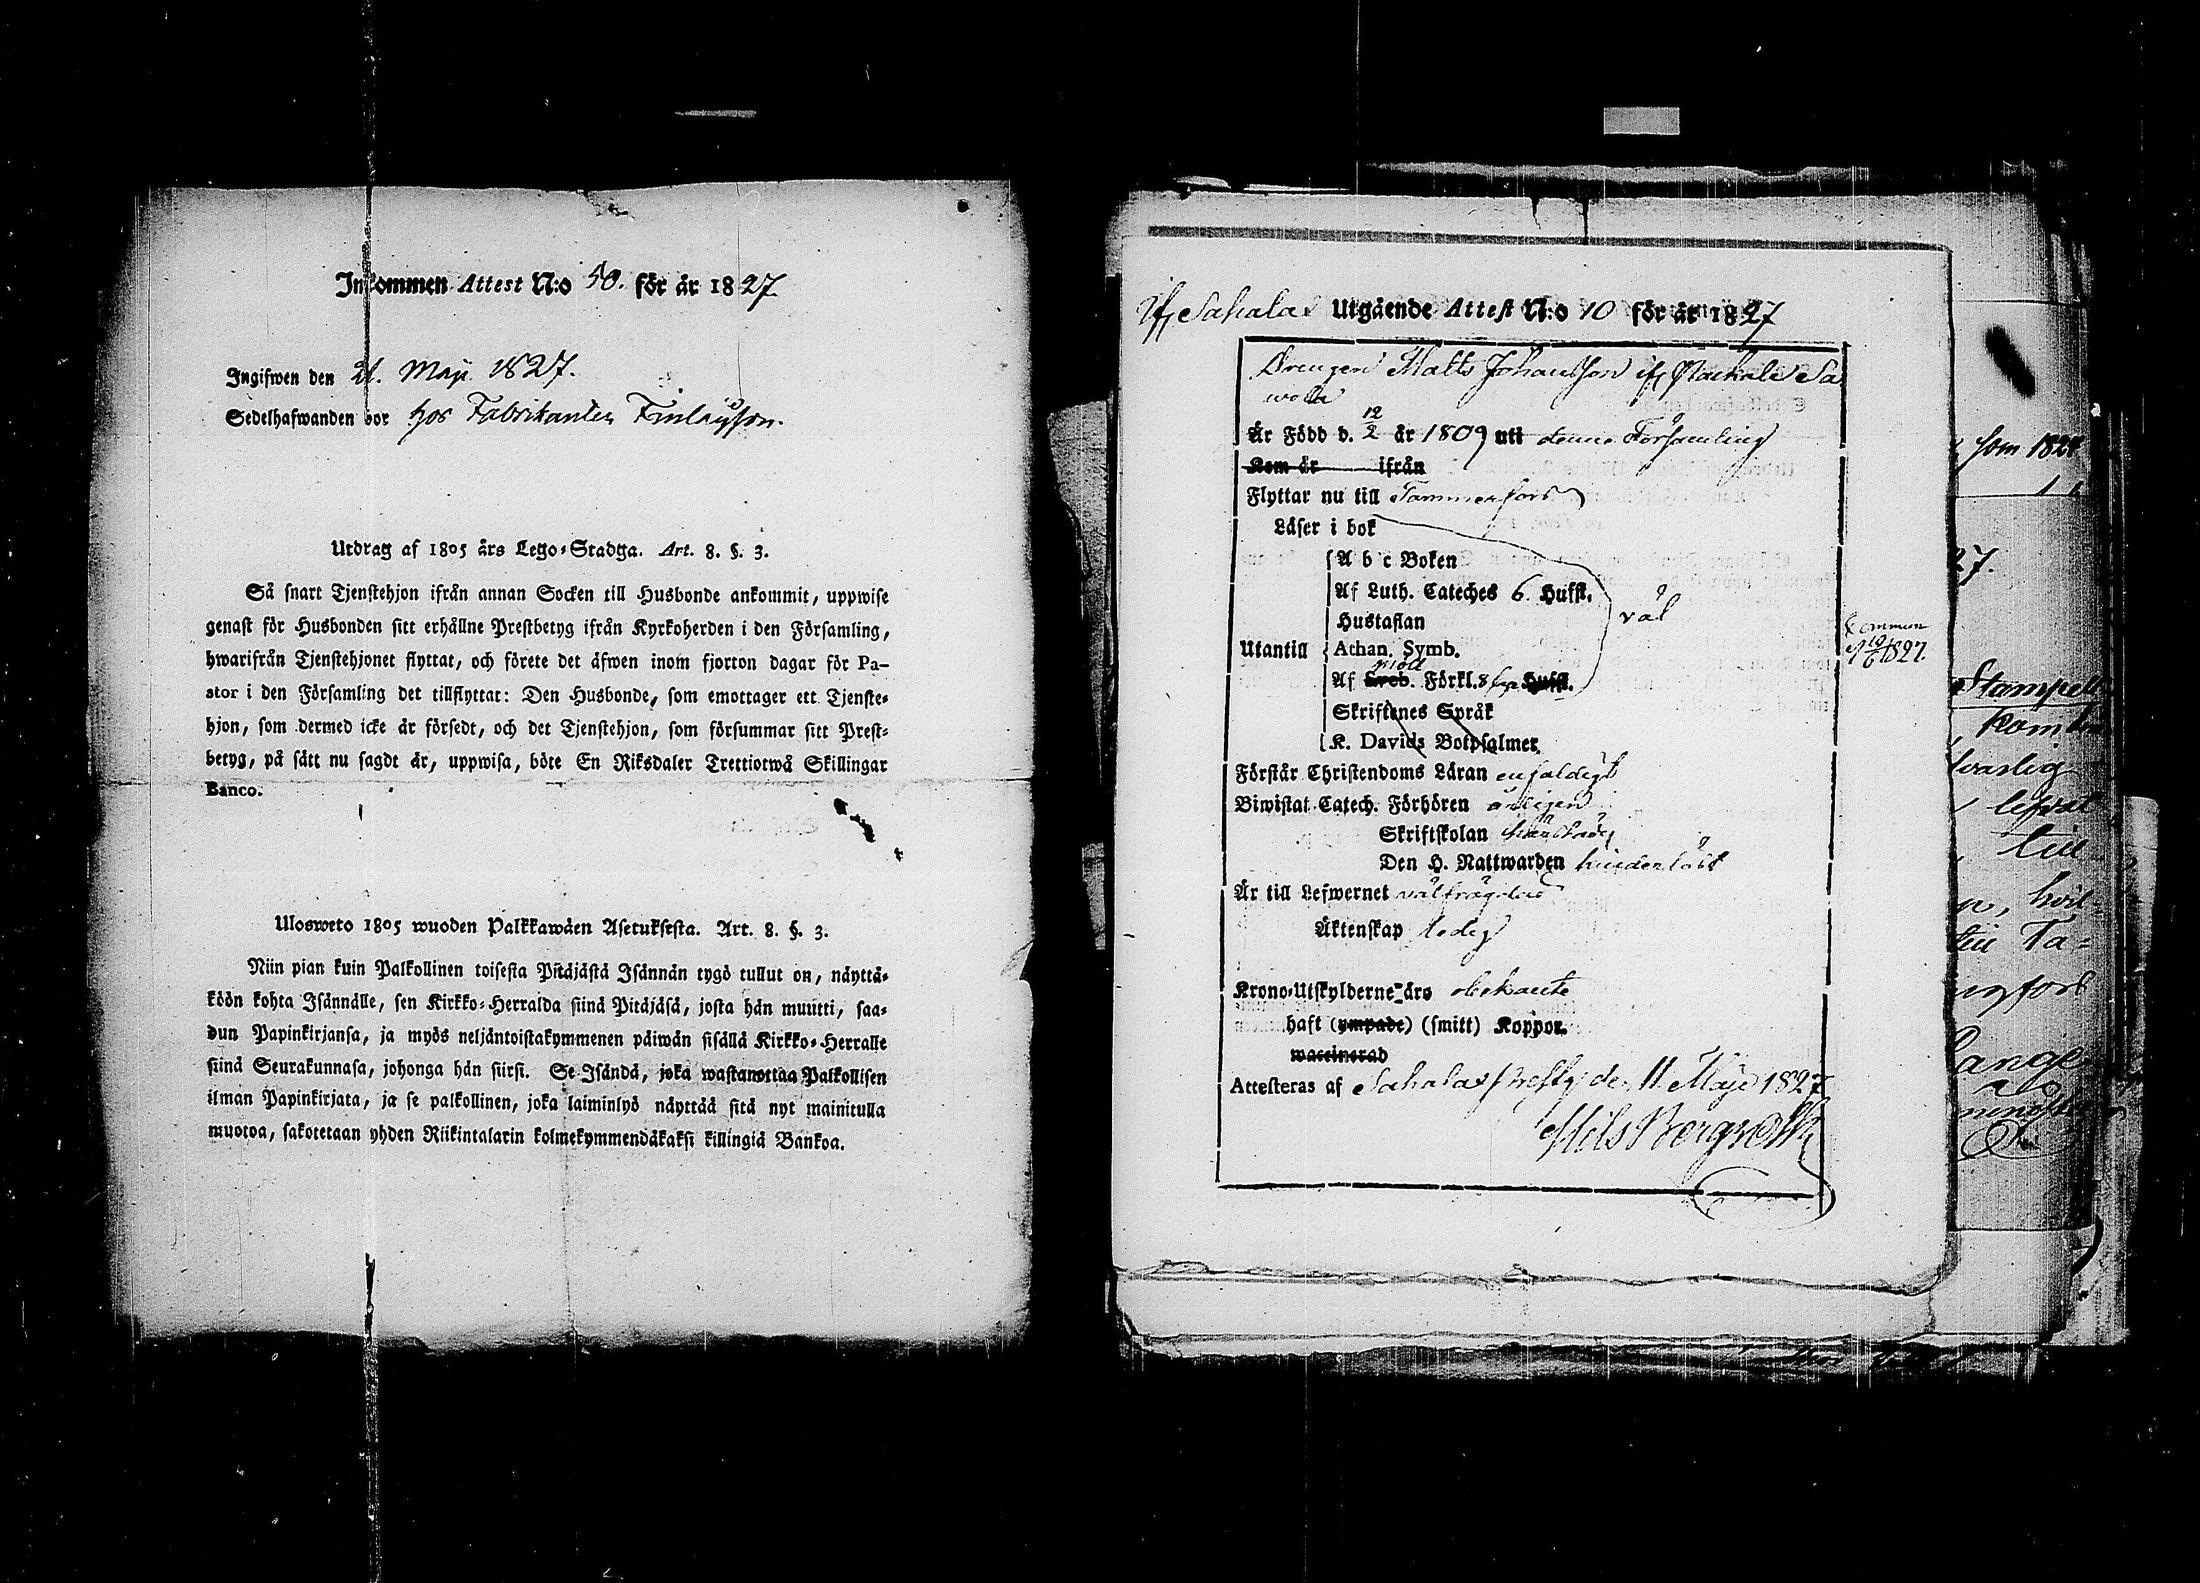 Inkommen Attest N:o 50. för år 1827
Ingifwen den 21. Maji 1827.
Sedelhafwanden bor hos Fabrikanten Finlaysson.
Utdrag af 1805 års Lego-Stadga. Art. 8. §. 3.
Så snart Tjenstehjon ifrån annan Socken till Husbonde ankommit, uppwise
genast för Husbonden sitt erhållne Prestbetyg ifrån Kyrkoherden i den Församling,
hwarifrån Tjenstehjonet flyttat, och förete det äfwen inom fjorton dagar för Pa-
stor i den Församling det tillflyttat: Den Husbonde, som emottager ett Tjenste-
hjon, som dermed icke är försedt, och det Tjenstehjon, som försummar sitt Prest-
betyg, på sätt nu sagdt är, uppwisa, böte En Riksdaler Trettiotwå Skillingar
Banco.
Ulosweto 1805 wuoden Palkkawäen Asetuksesta. Art. 8. §. 3.
Niin pian kuin Palkollinen toisesta Pitäjästä Isännän tygö tullut on, näyttä-
köön kohta Isännälle, sen Kirkko-Herralda siinä Pitäjäsä, josta hän muutti, saa-
dun Papinkirjansa, ja myös neljäntoistakymmenen päiwän sisällä Kirkko-Herralle
siinä Seurakunnasa, johonga hän siirsi. Se Isändä, joka wastanottaa Palkollisen
ilman Papinkirjata, ja se palkollinen, joka laiminlyö näyttää sitä nyt mainitulla
muotoa, sakotetaan yhden Riikintalarin kolmekymmendäkaksi killingiä Bankoa.
if Sahalax Utgående Attest N:o 10 för år 1827
Drengen Matts Johansson if
Är Född d. 12/2 år 1809 uti denne Församling
Kom år ifrån
Flyttar nu till Tammerfors
Läser i bok
A b c Boken
Af Luth. Cateches 6 Hufst.
Hustaflan
väl
Utantill Athan. Symb.
Af Sveb. Förkl. 8 Hufst.
Skriftenes Språk
K. Davids Botpsalmer
Förstår Christendoms Läran enfaldigt
Biwistat Catech. Förhören årligen
Skriftskolan
Den H. Nattwarden hinderlöst
Är till Lefwernet välfrägdad
Äktenskap ledig
Krono-Utskylderne äro obekante
haft (ympade) (smitt) Koppor.
waccinerad
Attesteras af Sahalax d. 11 Maji 1827
Nils Bergroth
1827.
som 182
27.
Stampell